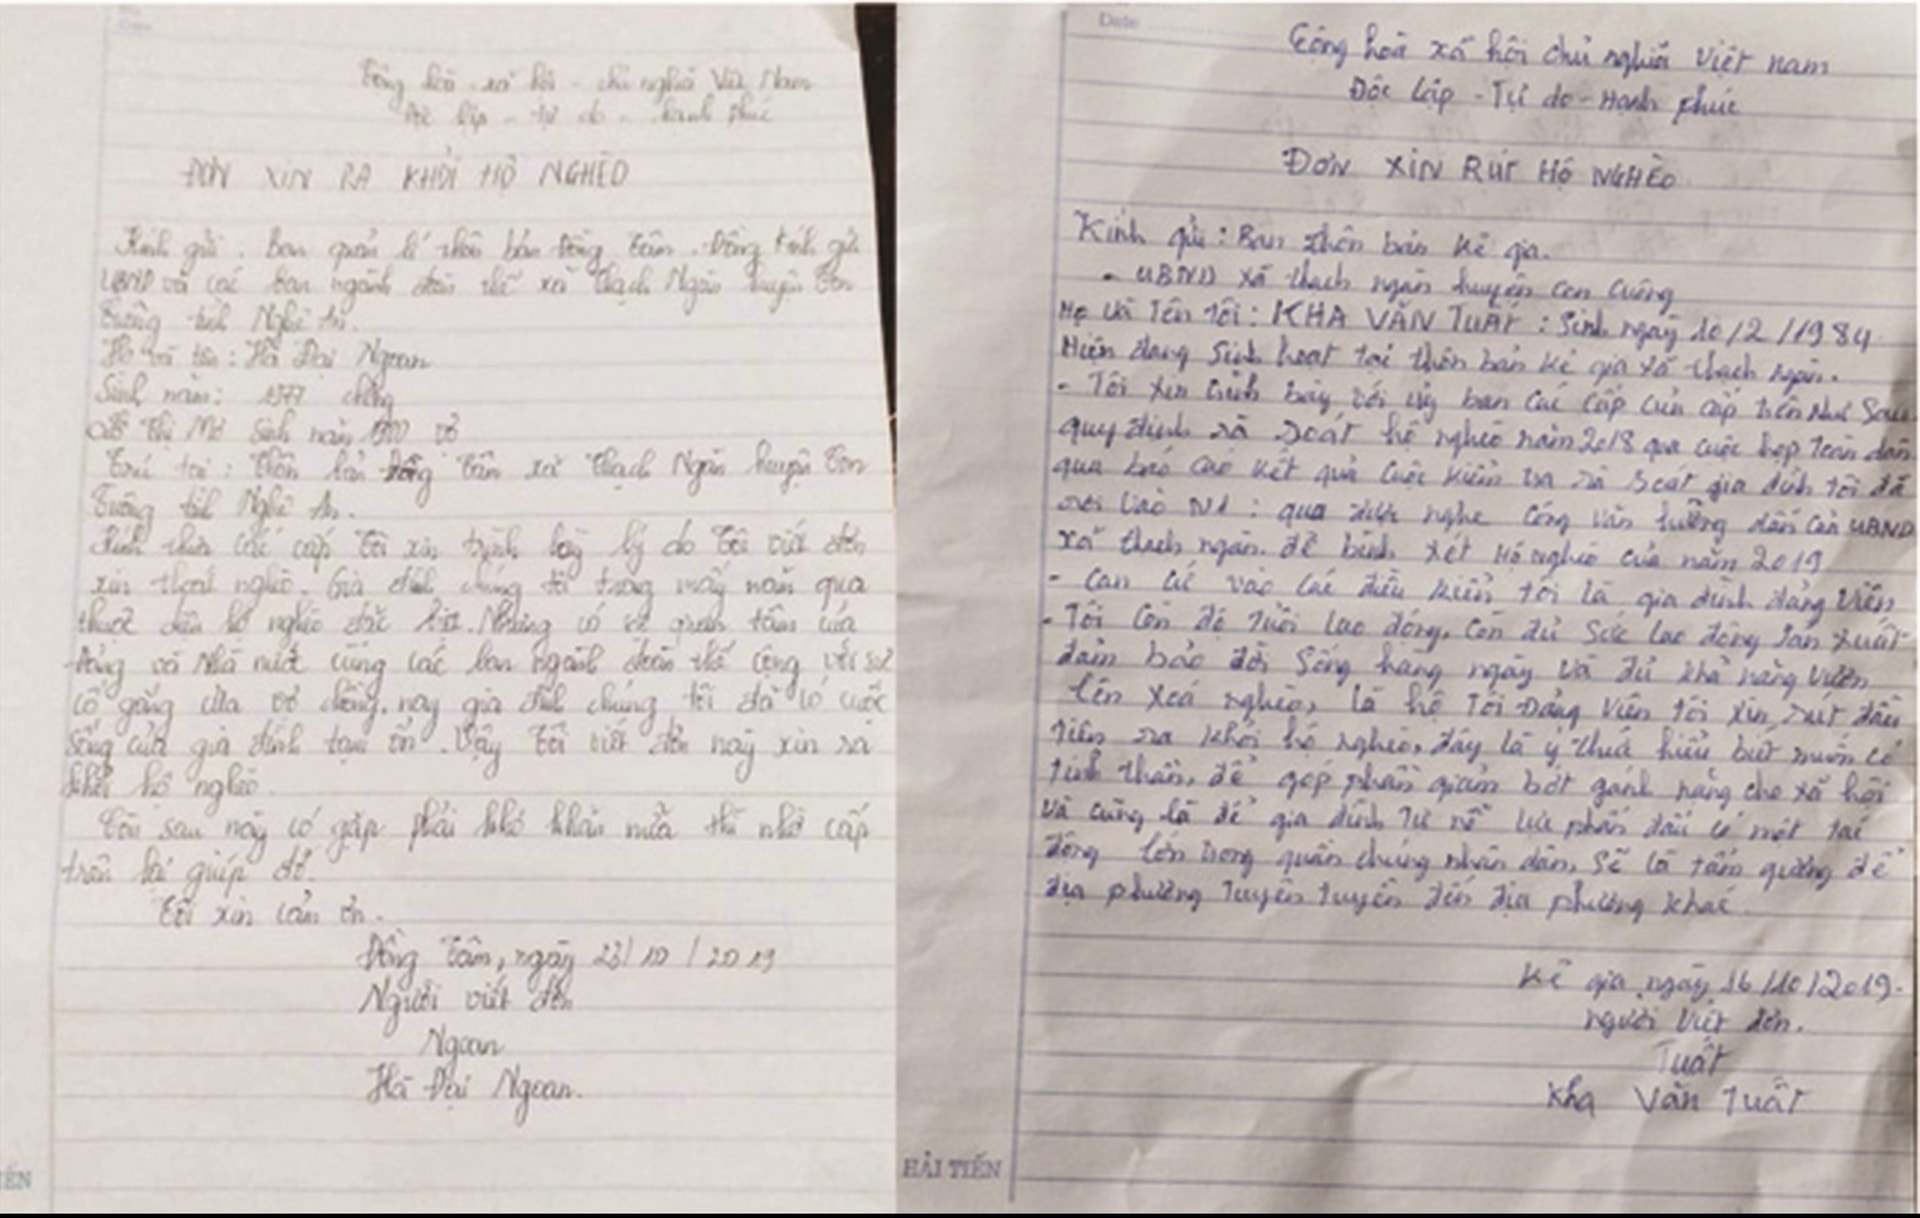 Cộng hoà - xã hội - chủ nghĩa Việt Nam
độc lập - tự do - hạnh phúc
ĐƠN XIN RA KHỎI HỘ NGHÈO
Kính gửi : Ban quản lí thôn bản Đồng Tâm. Đồng kính gửi
UBND và các ban ngành đoàn thể xã Thạch Ngàn huyện Con
Cuông tỉnh Nghệ An.
Họ và tên : Hà Đại Ngoan
Sinh năm : 1977 chồng
Thị Mơ sinh năm vợ
Trú tại : Thôn bản Đồng Tâm xã Thạch Ngàn huyện Con
Cuông tỉnh Nghệ An.
Kính thưa các cấp tôi xin trình bày lý do tôi viết đơn
xin thoát nghèo. Gia đình chúng tôi trong mấy năm qua
thuộc diện hộ nghèo đặc biệt. Nhưng có sự quan tâm của
Đảng và Nhà nước cùng các ban ngành đoàn thể cộng với sự
cố gắng của vợ chồng. nay gia đình chúng tôi đã có cuộc
sống của gia đình tạm ổn. Vậy tôi viết đơn này xin ra
khỏi hộ nghèo.
Còn sau này có gặp phải khó khăn nữa thì nhờ cấp
trên lại giúp đỡ.
Tôi xin cảm ơn.
Đồng Tâm, ngày 23/10/2019
Người viết đơn
Ngoan
Hà Đại Ngoan.
HẢI TIẾN
Date
Cộng hoà xã hội chủ nghĩa Việt nam
Độc lập - Tự do - Hạnh phúc
ĐƠN XIN RÚT HỘ NGHÈO
Kính gửi : Ban thôn bản Kẻ gia.
- UBND xã thạch ngàn huyện con cuông
Họ và Tên tôi : KHA VĂN TUẤT : Sinh ngày 10/2/1984
Hiện đang sinh hoạt tại thôn bản kẻ gia xã thạch ngàn.
- Tôi xin trình bày với uỷ ban các cấp của cấp trên như sau
quy định rà soát hộ nghèo năm 2018 qua cuộc họp toàn dân
qua báo cáo kết quả cuộc kiểm tra rà soát gia đình tôi đã
rơi vào N1 : qua được nghe công văn hướng dẫn của UBND
xã thạch ngàn. để bình xét Hộ nghèo của năm 2019
- Can cứ vào các điều kiện tôi là gia đình đảng viên
- Tôi còn độ tuổi lao động, còn đủ sức lao động sản xuất
đảm bảo đời sống hàng ngày và đủ khả năng vươn
lên xoá nghèo, là hộ Tôi Đảng viên tôi xin rút đầu
tiên ra khỏi hộ nghèo, đây là ý thức hiểu biết muốn có
tinh thần, để góp phần giảm bớt gánh nặng cho xã hội
và cũng là để gia đình tự nổ lực phấn đấu có một tác
động lớn trong quần chúng nhân dân, sẽ là tấm gương để
địa phương tuyên truyền đến địa phương khác.
Kẻ gia ngày 16/10/2019.
người viết đơn.
Tuất
Kha Văn Tuất
HẢI TIẾN